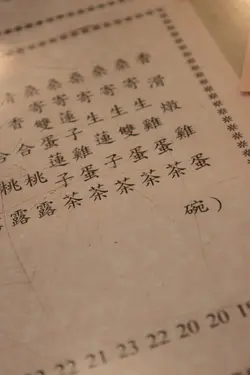 清桑桑桑桑桑香
寄寄寄寄寄滑
香雙蓮生生生燉
合合蛋子蓮雙雞
蓮雞子蛋蛋雞
桃桃子蛋
露露茶茶茶茶茶蛋
碗）
22 22 21 23 22 20 20 19